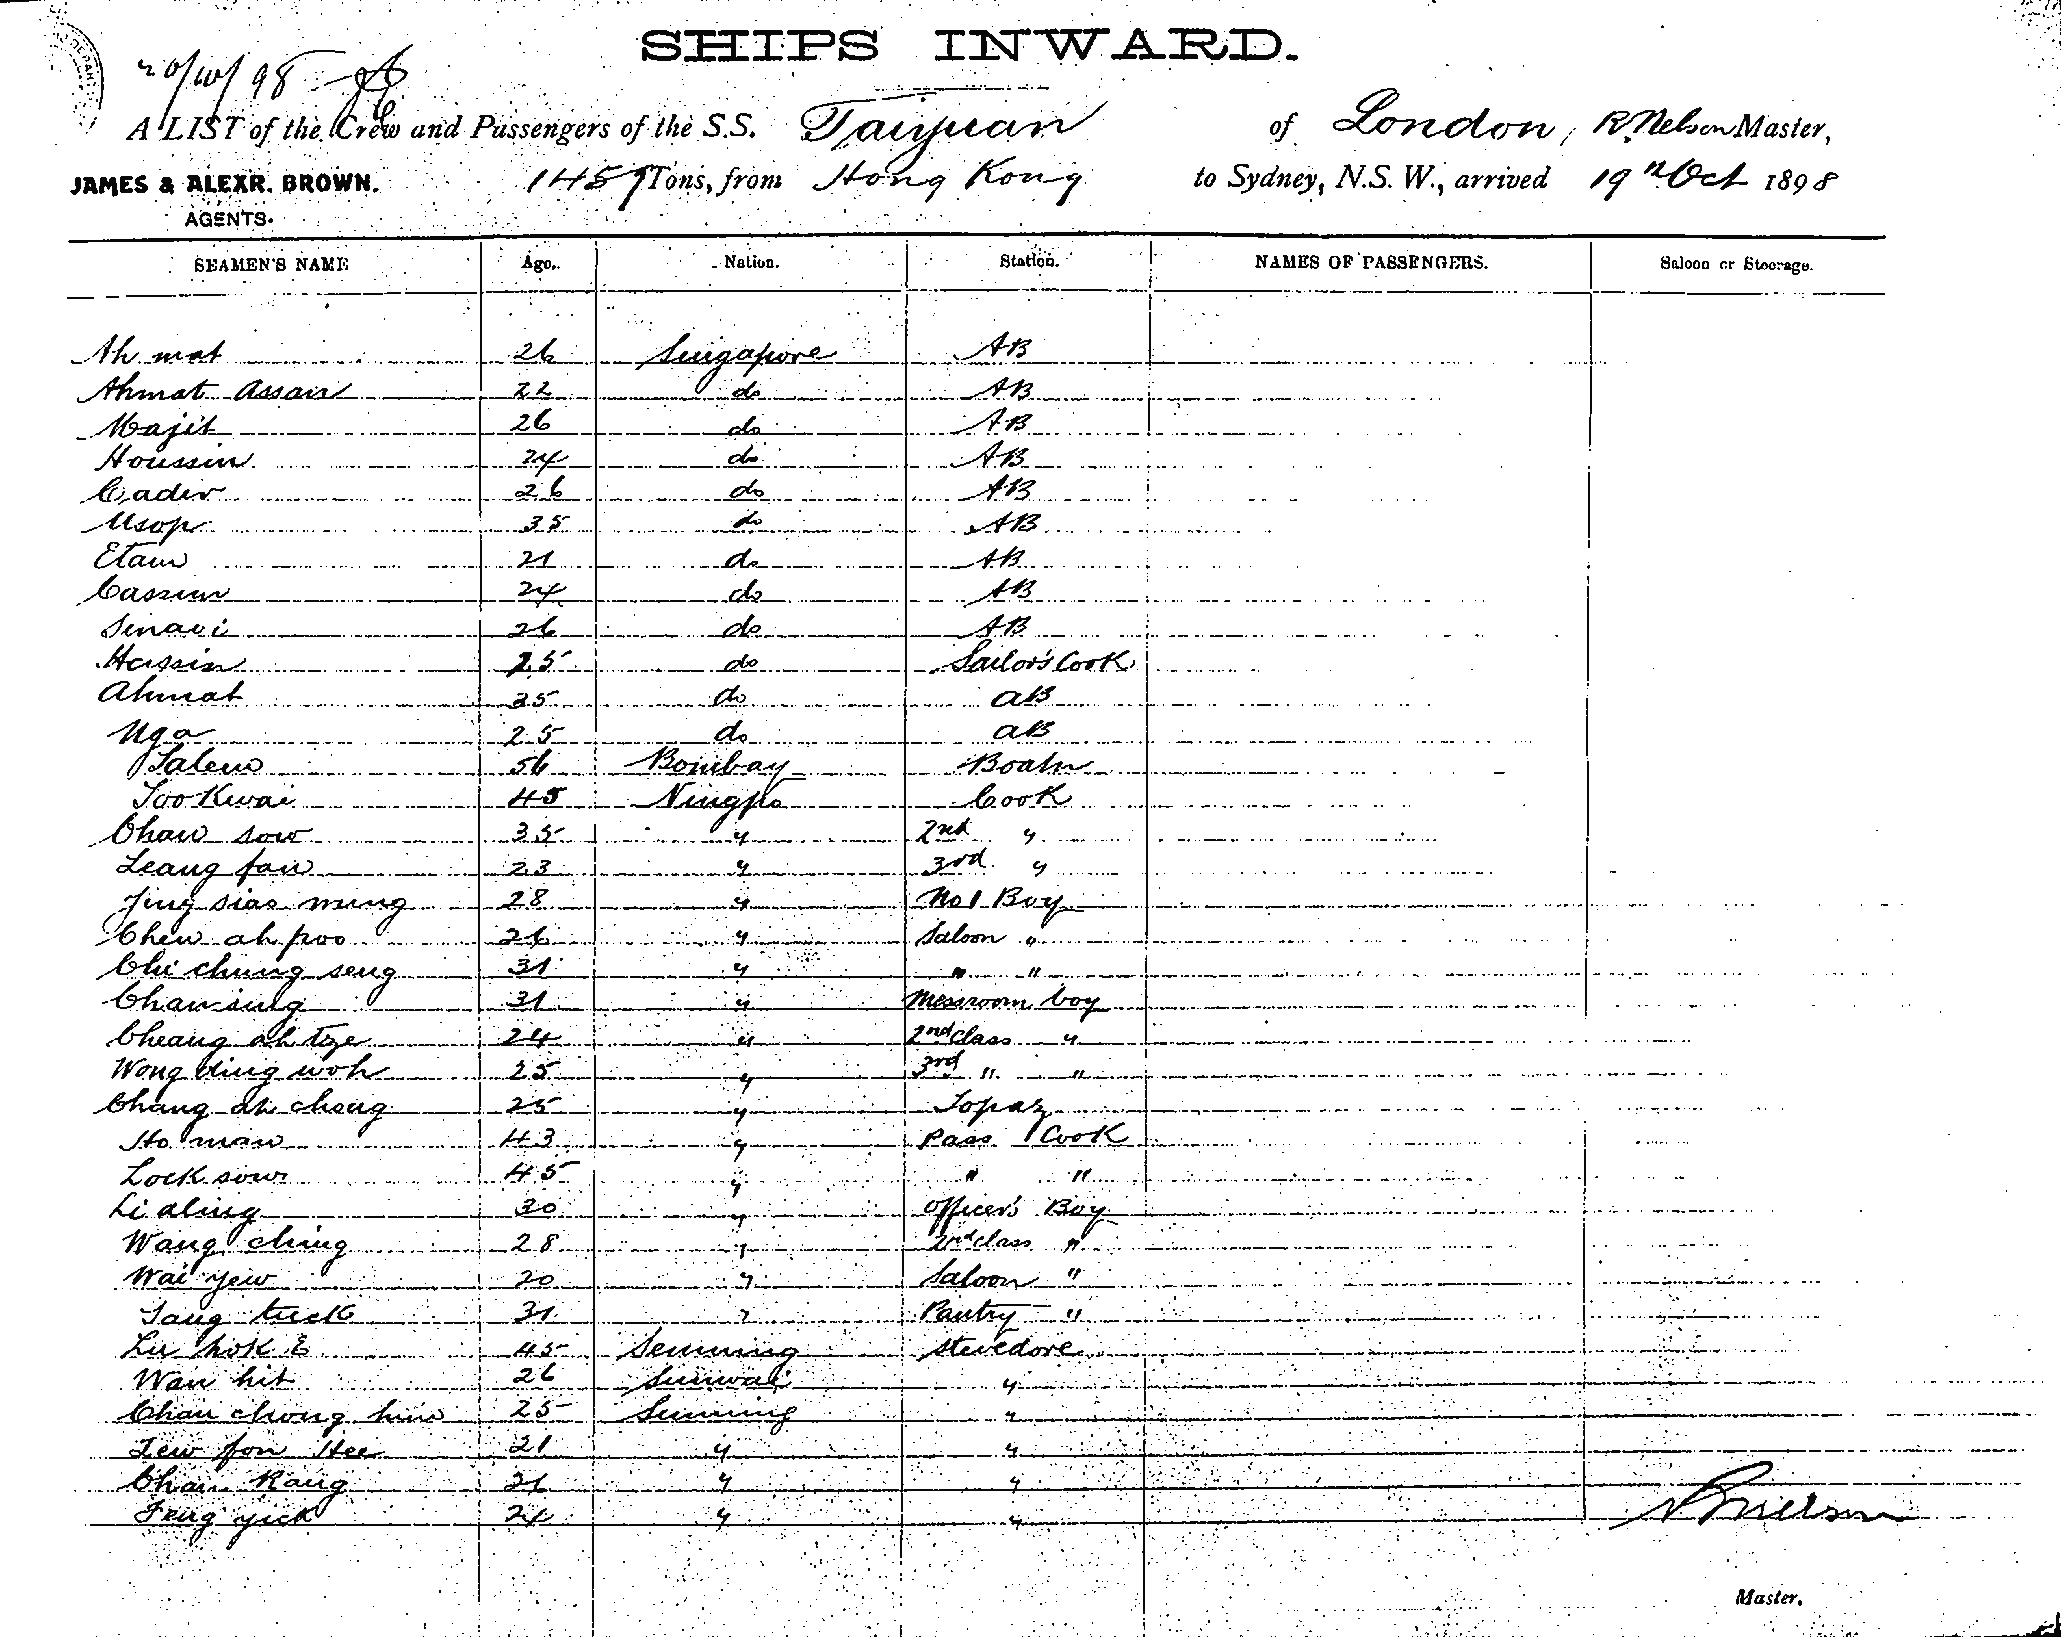 SHIPS INWARD.
20/10/98
A LIST of the Crew and Passengers of the S.S. Taiyuan of London, R. Nelson Master,
JAMES & ALEXR. BROWN. 1459 Tons, from Hong Kong to Sydney, N.S.W., arrived 19th Oct 1898
AGENTS.
SEAMEN'S NAME Age. Nation. Station. NAMES OF PASSENGERS. Saloon or Steerage.
Ah mat 26 Singapore AB
Ahmat Assan 22 do AB
Majit 26 do AB
Houssin 24 do AB
Cader 26 do AB
Usop 35 do AB
Etam 21 do AB
Cassim 24 do AB
Sinavi 26 do AB
Hassin 25 do Sailor's Cook
Ahmat 35 do AB
Nga 25 do AB
Salem 56 Bombay Boatn
Soo Kwai 45 Ningpo Cook
Chan sow 35 " 2nd "
Leang fan 23 " 3rd "
Jing siao ming 28 " No 1 Boy
Chew ah poo 26 " Saloon "
Chi chung seng 31 " " "
Chan sing 31 " Messroom boy
Cheang ah tze 24 " 2nd class "
Wong ding woh 25 " 3rd " "
Chang ah chong 25 " Topaz
Ho man 43 " Pass Cook
Lock sow 45 " " "
Li aling 30 " Officer's Boy
Wang ching 28 " 2nd class "
Wai yew 20 " Saloon "
Tang tuck 31 " Pantry "
Lu hok E 45 Senning stevedore
Wan hit 26 Sunwai "
Chan chong 25 Sunning "
Lew fon Hee 21 " "
Chan Kang 21 " "
Feng yick 24 " "
R Nelson
Master.